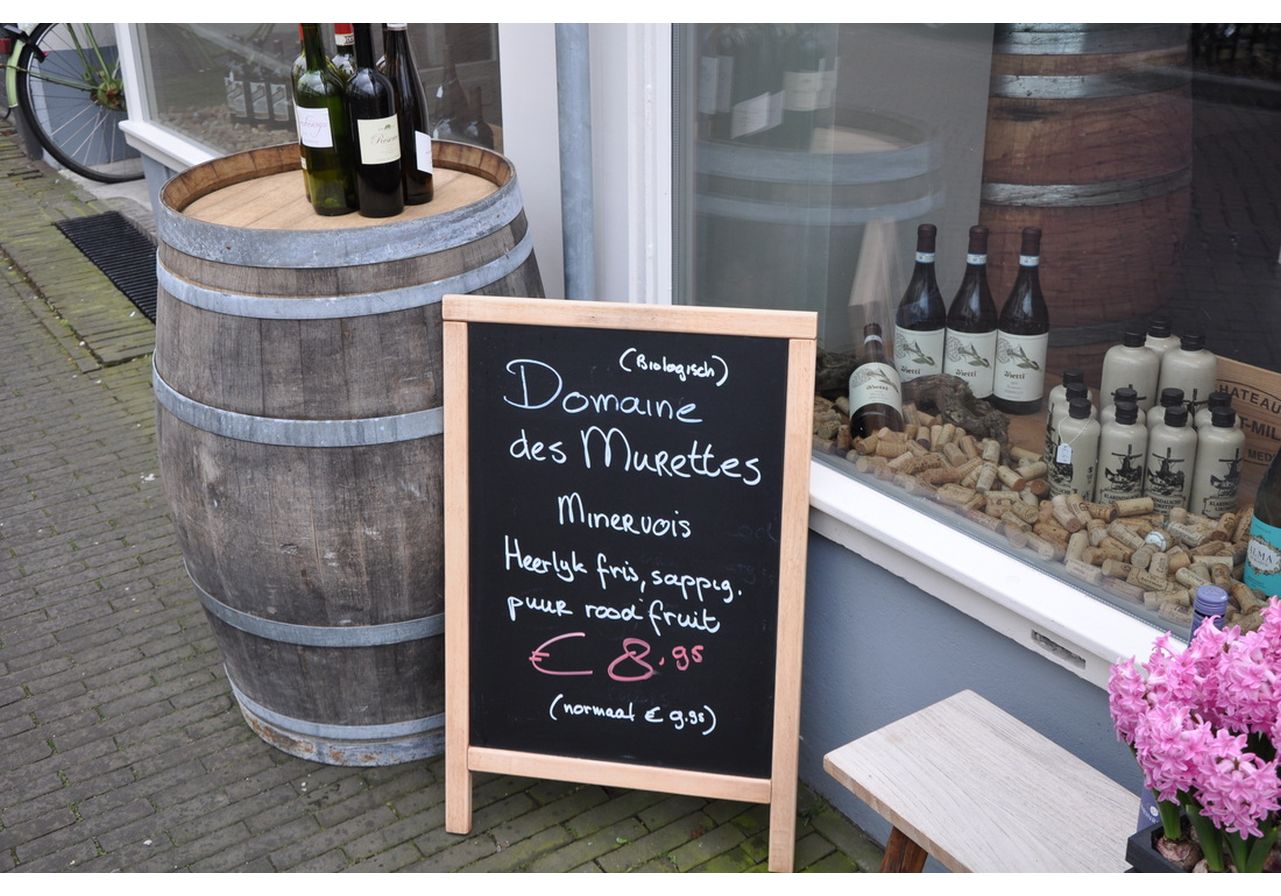 (Biologisch)
Domaine
des Murettes
Minervois
Heerlyk fris, sappig.
puur rood fruit
€ 8.95
(normaal € 9.95)
HATEAU
T-MIL
MED
ALMA